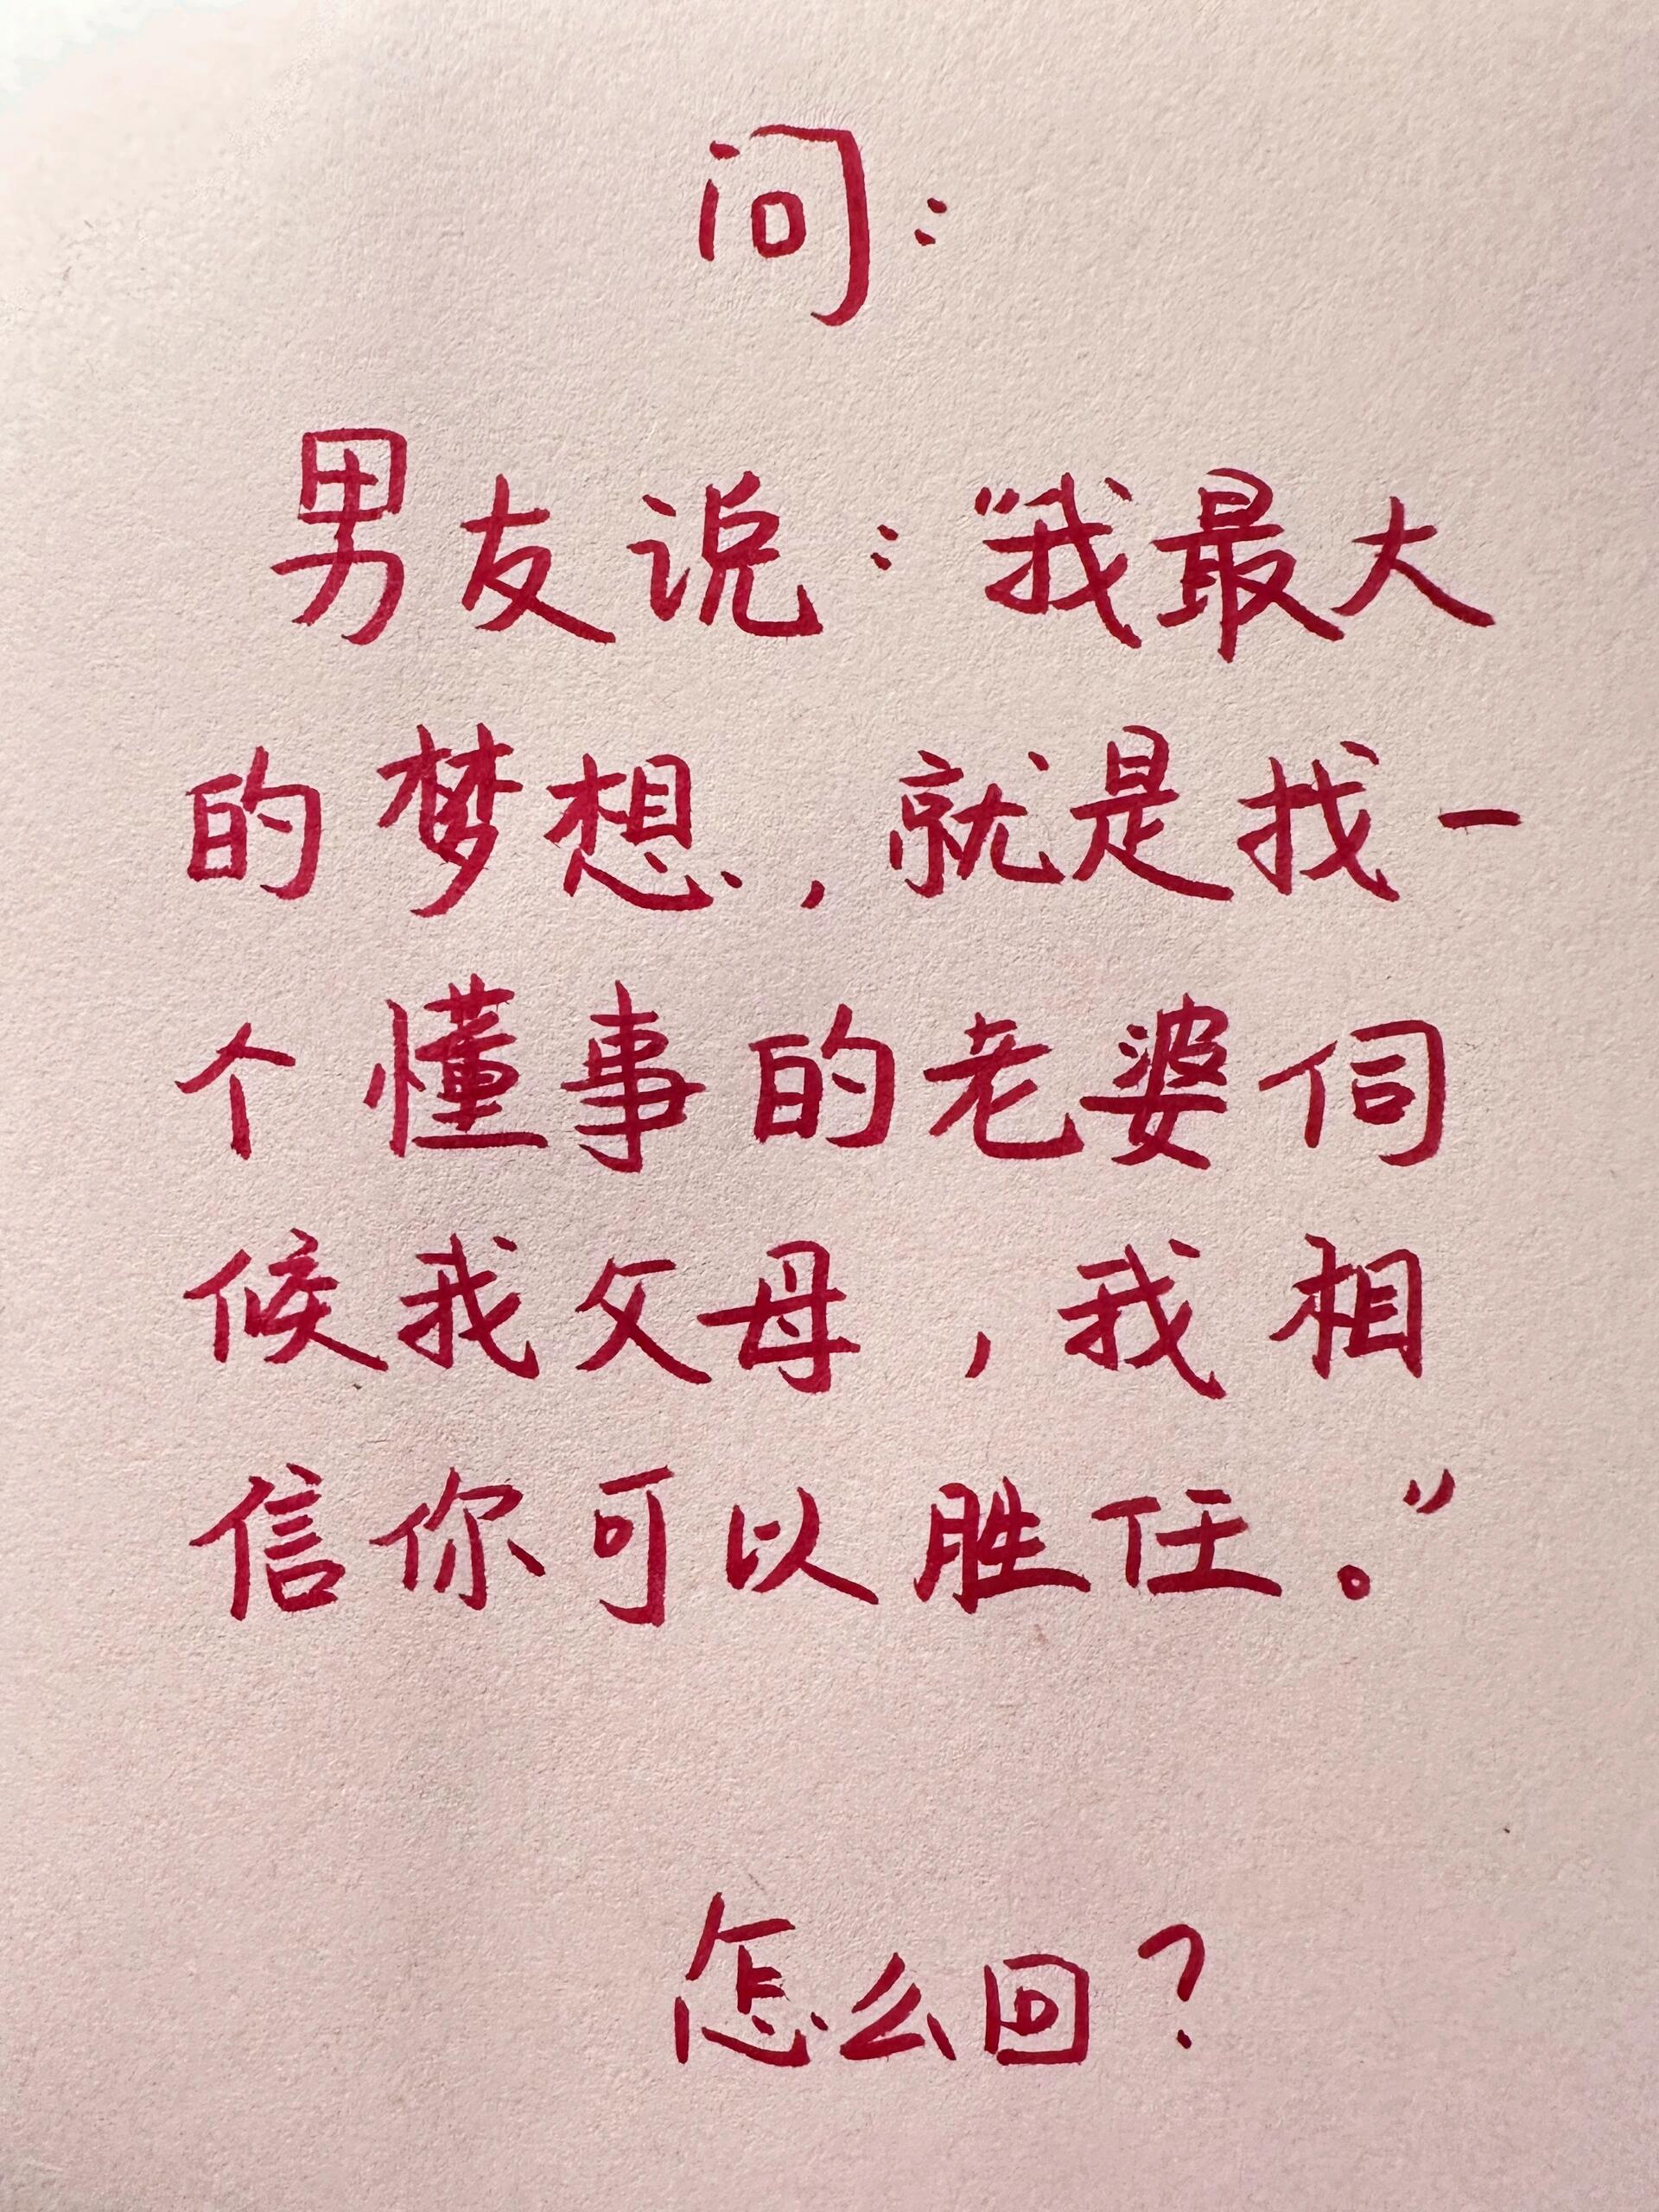 问：
男友说：“我最大
的梦想，就是找一
个懂事的老婆伺
候我父母，我相
信你可以胜任。”
怎么回？